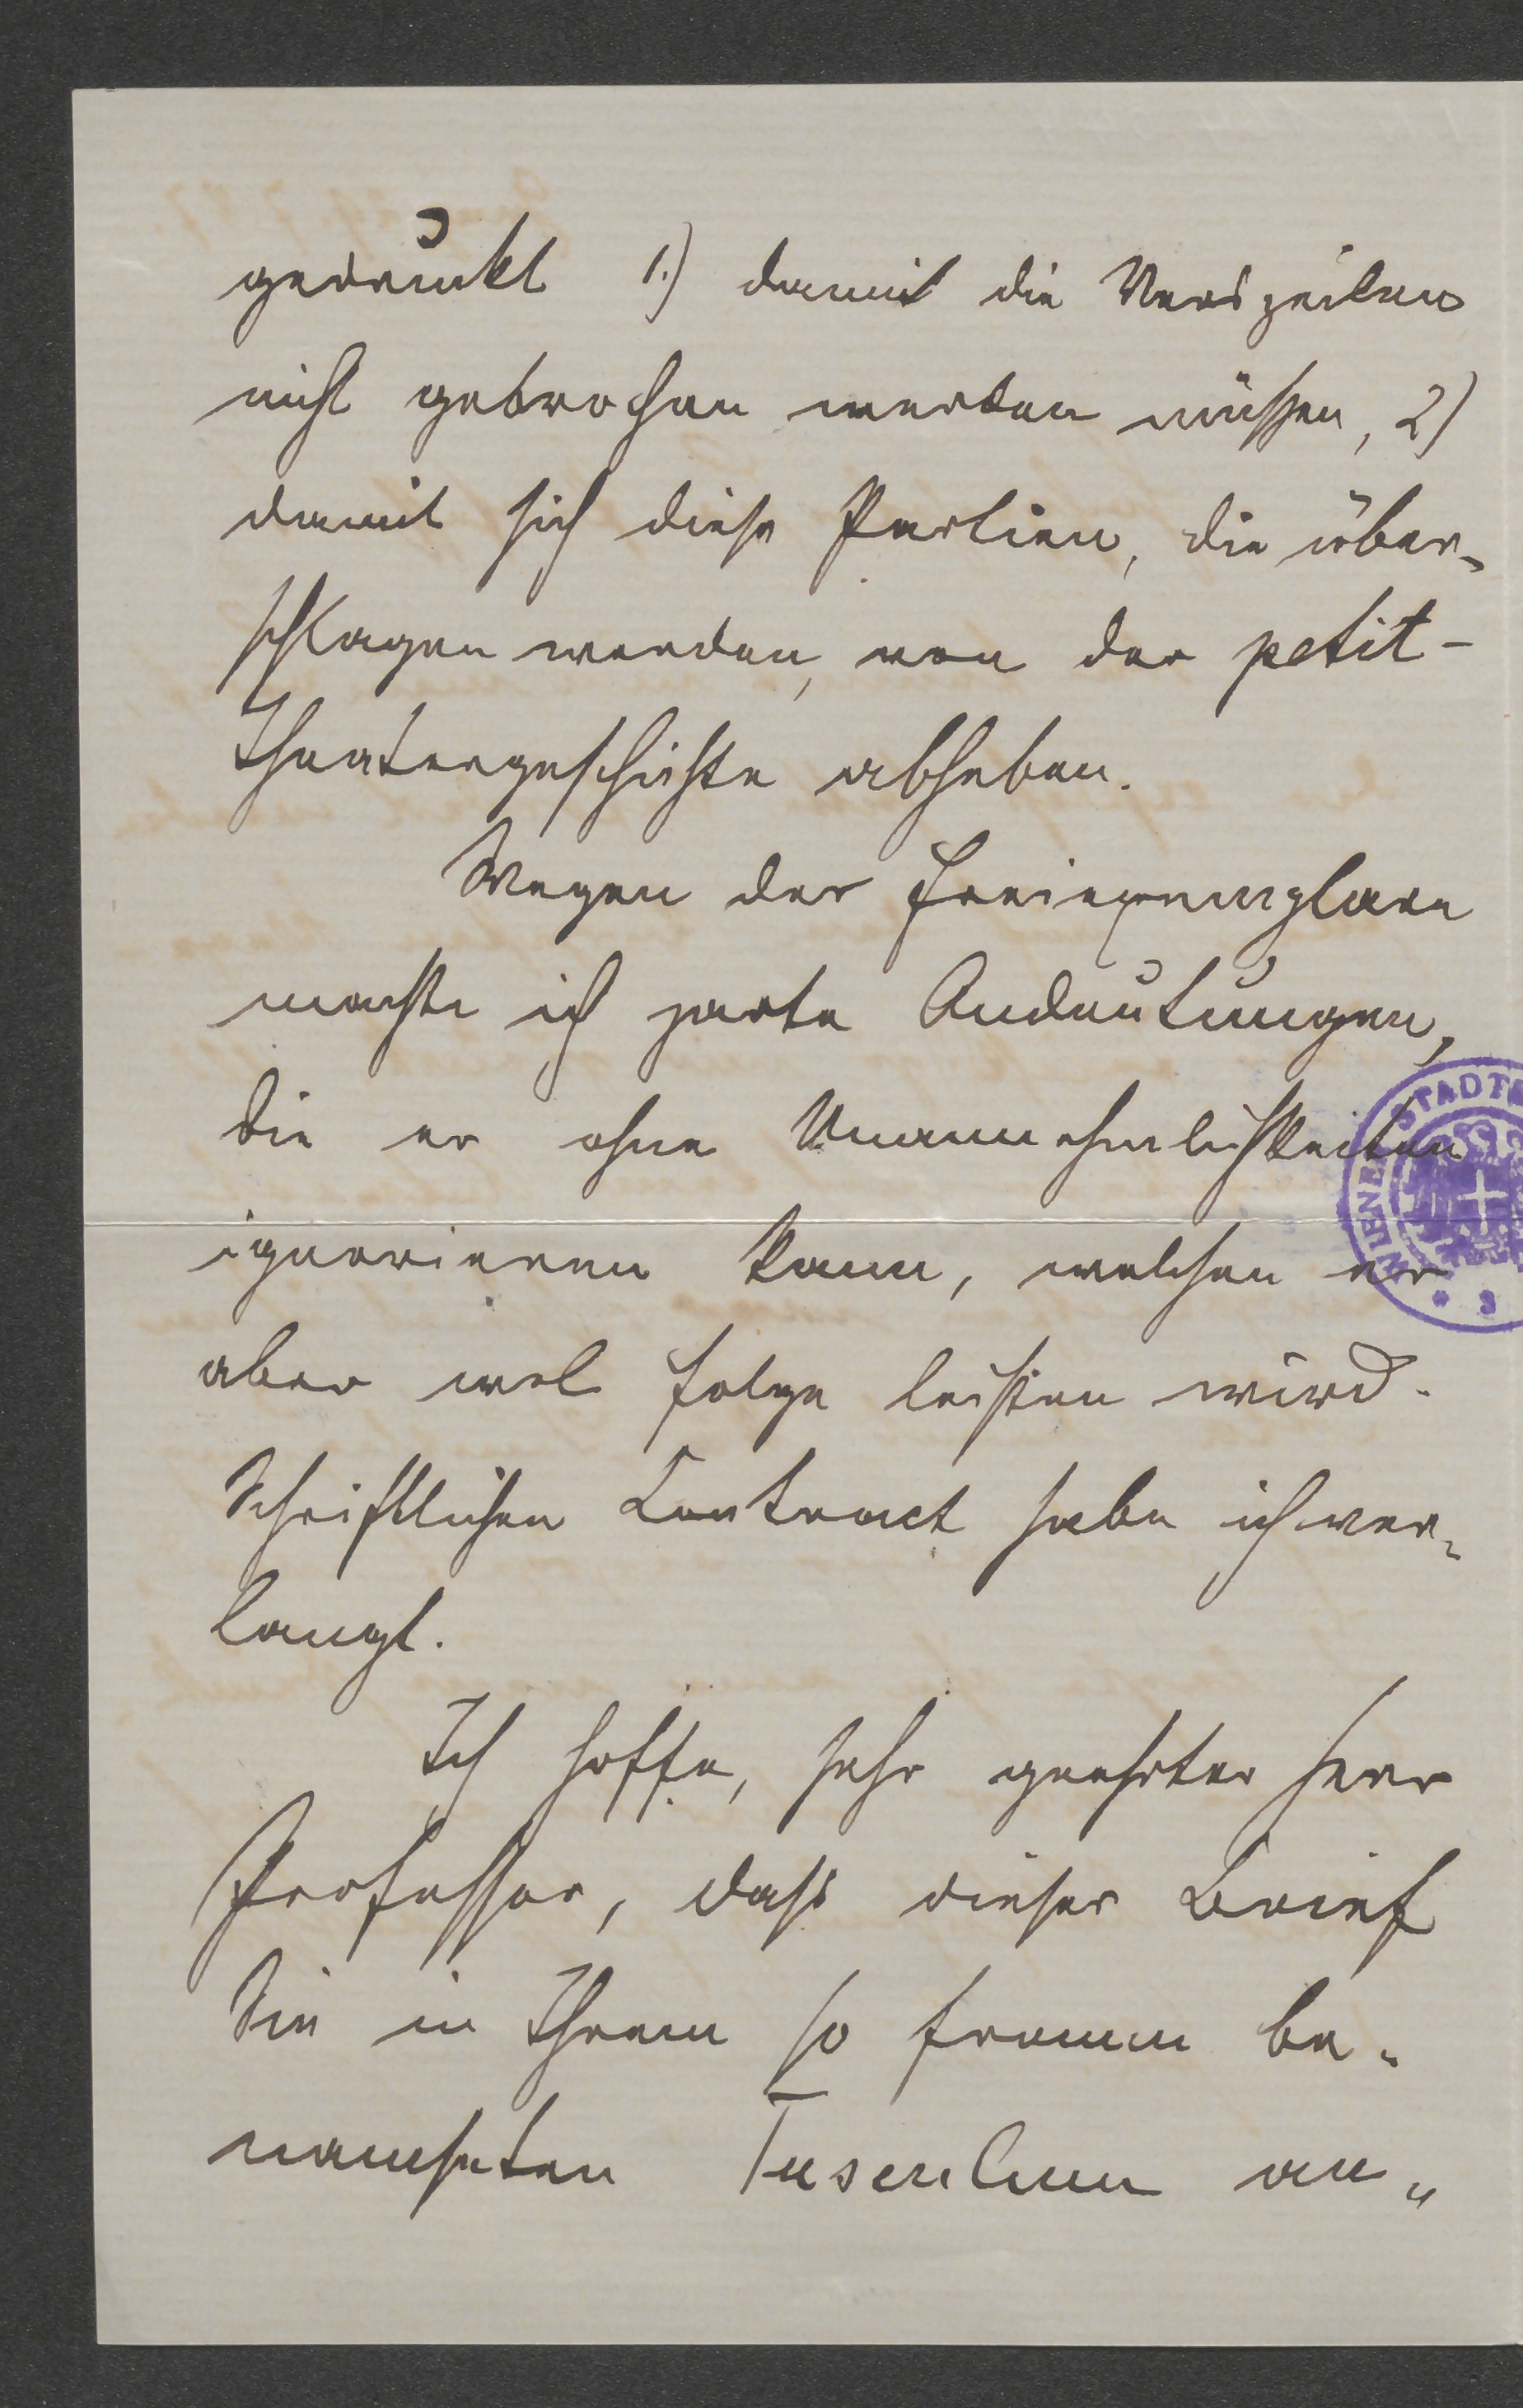 gedruckt 1.) damit die Verszeilen
nicht gebrochen werden müssen, 2)
damit sich diese Partien, die über-
schlagen werden, von der petit-
Theatergeschichte abheben.
Wegen der Freiexemplare
machte ich zarte Andeutungen,
die er ohne Unannehmlichkeiten
ignorieren kann, welchen er
aber wol folge leisten wird.
Schriftlichen Contract habe ich ver-
langt.
Ich hoffe, sehr geehrter Herr
Professor, dass dieser Brief
Sie in Ihrem so fromm be-
namseten Tusculum an-
WIENER STADT